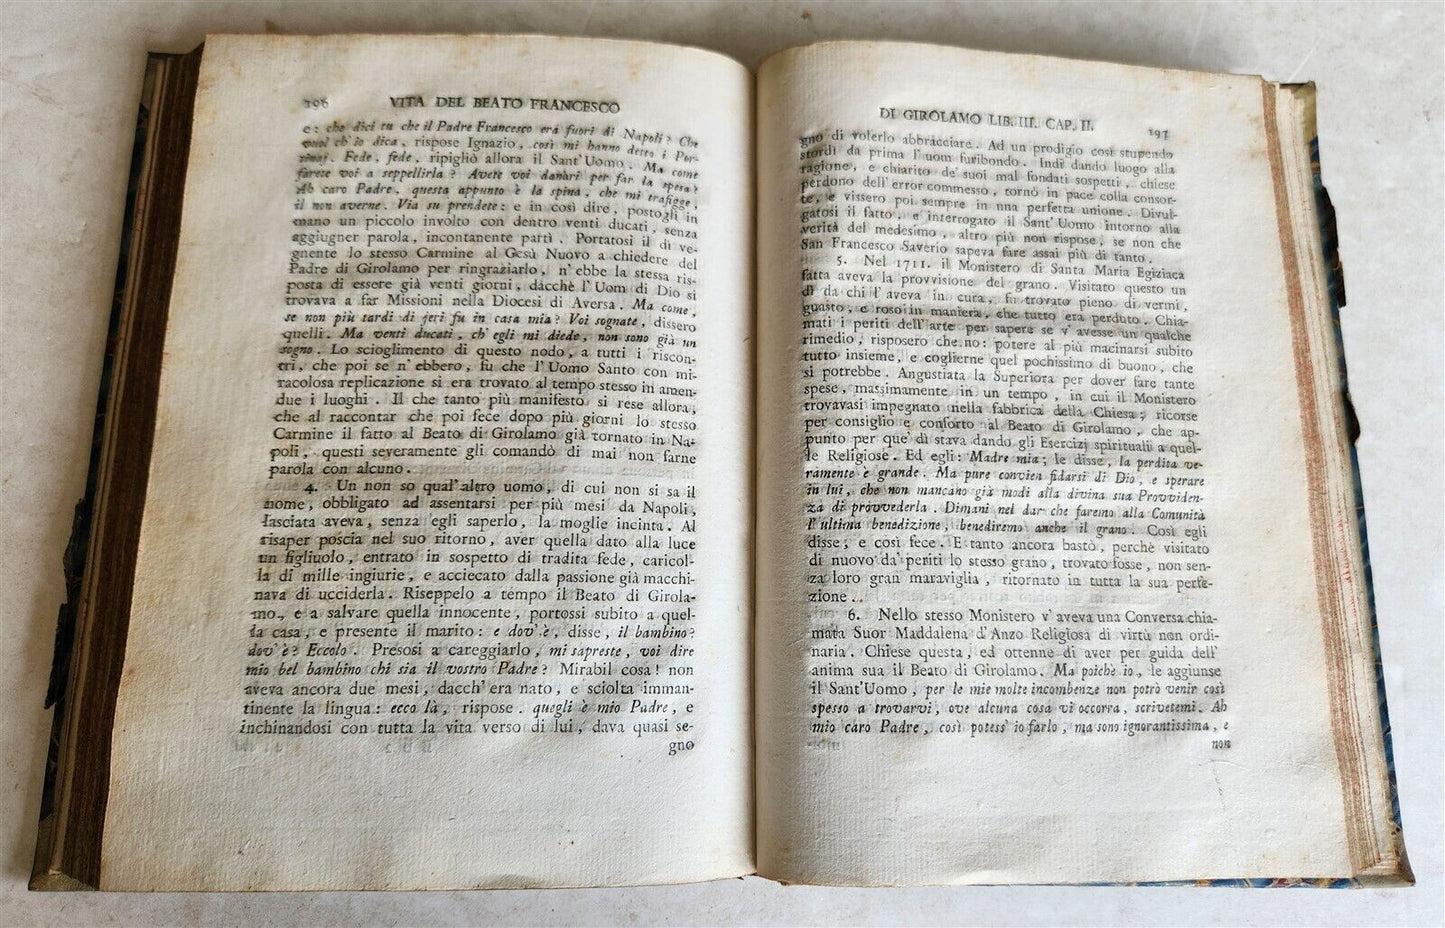 196 VITA DEL BEATO FRANCESCO
e: che dici tu che il Padre Francesco era fuori di Napoli? Che
vuol ch'io dica, rispose Ignazio, così mi hanno detto i Por-
tinaj. Fede, fede, ripigliò allora il Sant'Uomo. Ma come
farete voi a seppellirla? Avete voi danari per far la spesa?
Ah caro Padre, questa appunto è la spina, che mi trafigge,
il non averne. Via su prendete: e in così dire, postogli in
mano un piccolo involto con dentro venti ducati, senza
aggiugner parola, incontanente partì. Portatosi il dì ve-
gnente lo stesso Carmine al Gesù Nuovo a chiedere del
Padre di Girolamo per ringraziarlo, n'ebbe la stessa ris-
posta di essere già venti giorni, dacchè l'Uom di Dio si
trovava a far Missioni nella Diocesi di Aversa. Ma come,
se non più tardi di jeri fu in casa mia? Voi sognate, dissero
quelli. Ma venti ducati, ch'egli mi diede, non sono già un
sogno. Lo scioglimento di questo nodo, a tutti i riscon-
tri, che poi se n'ebbero, fu che l'Uomo Santo con mi-
racolosa replicazione si era trovato al tempo stesso in amen-
due i luoghi. Il che tanto più manifesto si rese allora,
che al raccontar che poi fece dopo più giorni lo stesso
Carmine il fatto al Beato di Girolamo già tornato in Na-
poli, questi severamente gli comandò di mai non farne
parola con alcuno.
4. Un non so qual'altro uomo, di cui non si sa il
nome, obbligato ad assentarsi per più mesi da Napoli,
lasciata aveva, senza egli saperlo, la moglie incinta. Al
risaper poscia nel suo ritorno, aver quella dato alla luce
un figliuolo, entrato in sospetto di tradita fede, caricol-
la di mille ingiurie, e acciecato dalla passione già macchi-
nava di ucciderla. Riseppelo a tempo il Beato di Girola-
mo, e a salvare quella innocente, portossi subito a quel-
la casa, e presente il marito: e dov'è, disse, il bambino?
dov'è? Eccolo. Presosi a careggiarlo, mi sapreste, voi dire
mio bel bambino chi sia il vostro Padre? Mirabil cosa! non
aveva ancora due mesi, dacch'era nato, e sciolta imman-
tinente la lingua: ecco là, rispose. quegli è mio Padre, e
inchinandosi con tutta la vita verso di lui, dava quasi se-
gno
DI GIROLAMO LIB. III. CAP. II. 197
gno di volerlo abbracciare. Ad un prodigio così stupendo
stordì da prima l'uom furibondo. Indi dando luogo alla
ragione, e chiarito de' suoi mal fondati sospetti, chiese
perdono dell'error commesso, tornò in pace colla consor-
te, e vissero poi sempre in una perfetta unione. Divul-
gatosi il fatto, e interrogato il Sant'Uomo intorno alla
verità del medesimo, altro più non rispose, se non che
San Francesco Saverio sapeva fare assai più di tanto.
5. Nel 1711. il Monistero di Santa Maria Egiziaca
fatta aveva la provvisione del grano. Visitato questo un
dì da chi l'aveva in cura, fu trovato pieno di vermi,
guasto, e roso in maniera, che tutto era perduto. Chia-
mati i periti dell'arte per sapere se v'avesse un qualche
rimedio, risposero che no: potere al più macinarsi subito
tutto insieme, e coglierne quel pochissimo di buono, che
si potrebbe. Angustiata la Superiora per dover fare tante
spese, massimamente in un tempo, in cui il Monistero
trovavasi impegnato nella fabbrica della Chiesa; ricorse
per consiglio e conforto al Beato di Girolamo, che ap-
punto per que' dì stava dando gli Esercizj spirituali a quel-
le Religiose. Ed egli: Madre mia; le disse, la perdita ve-
ramente è grande. Ma pure convien fidarsi di Dio, e sperare
in lui, che non mancano già modi alla divina sua Provviden-
za di provvederla. Dimani nel dar che faremo alla Comunità
l'ultima benedizione, benediremo anche il grano. Così egli
disse; e così fece. E tanto ancora bastò, perchè visitato
di nuovo da' periti lo stesso grano, trovato fosse, non sen-
za loro gran maraviglia, ritornato in tutta la sua perfe-
zione.
6. Nello stesso Monistero v'aveva una Conversa chia-
mata Suor Maddalena d'Anzo Religiosa di virtù non ordi-
naria. Chiese questa, ed ottenne di aver per guida dell'
anima sua il Beato di Girolamo. Ma poichè io, le aggiunse
il Sant'Uomo, per le mie molte incombenze non potrò venir così
spesso a trovarvi, ove alcuna cosa vi occorra, scrivetemi. Ah
mio caro Padre, così potess'io farlo, ma sono ignorantissima, e
non